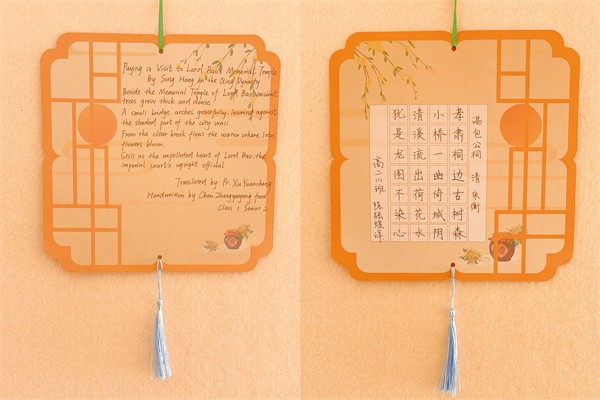 Paying a Visit to Lord Bao's Memorial Temple
by Song Heng in the Qing Dynasty
Beside the Memorial Temple of Lord Bao, ancient
trees grow thick and dense.
A small bridge arches gracefully, leaning against
the shaded part of the city wall.
From the clear brook flows the water where lotus
flowers bloom.
Still as the unpolluted heart of Lord Bao, the
imperial court's upright official.
Translated by Pr. Xu
Handwritten by Chen from
Class 1 Senior 2
谒包公祠 清 宋衡
孝肃祠边古树森
小桥一曲倚城阴
清溪流出荷花水
犹是龙图不染心
高二(1)班 陈张